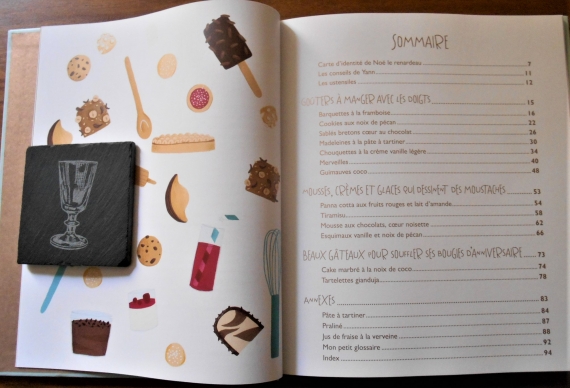 SOMMAIRE
Carte d'identité de Nué le renardeau 7
Les conseils de Yann 11
Les ustensiles 12
GOÛTERS À MANGER AVEC LES DOIGTS 15
Barquettes à la framboise 16
Cookies aux noix de pécan 22
Sablés bretons cœur au chocolat 26
Madeleines à la pâte à tartiner 30
Chouquettes à la crème vanille légère 34
Merveilles 40
Guimauves coco 48
MOUSSES, CRÈMES ET GLACES QUI DESSINENT DES MOUSTACHES 53
Panna cotta aux fruits rouges et lait d'amande 54
Tiramisu 58
Mousse aux chocolats, cœur noisette 62
Esquimaux vanille et noix de pécan 66
BEAUX GÂTEAUX POUR SOUFFLER SES BOUGIES D'ANNIVERSAIRE 73
Cake marbré à la noix de coco 74
Tartelettes gianduja 78
ANNEXES 83
Pâte à tartiner 84
Praliné 87
Jus de fraise à la verveine 88
Mon petit glossaire 92
Index 94